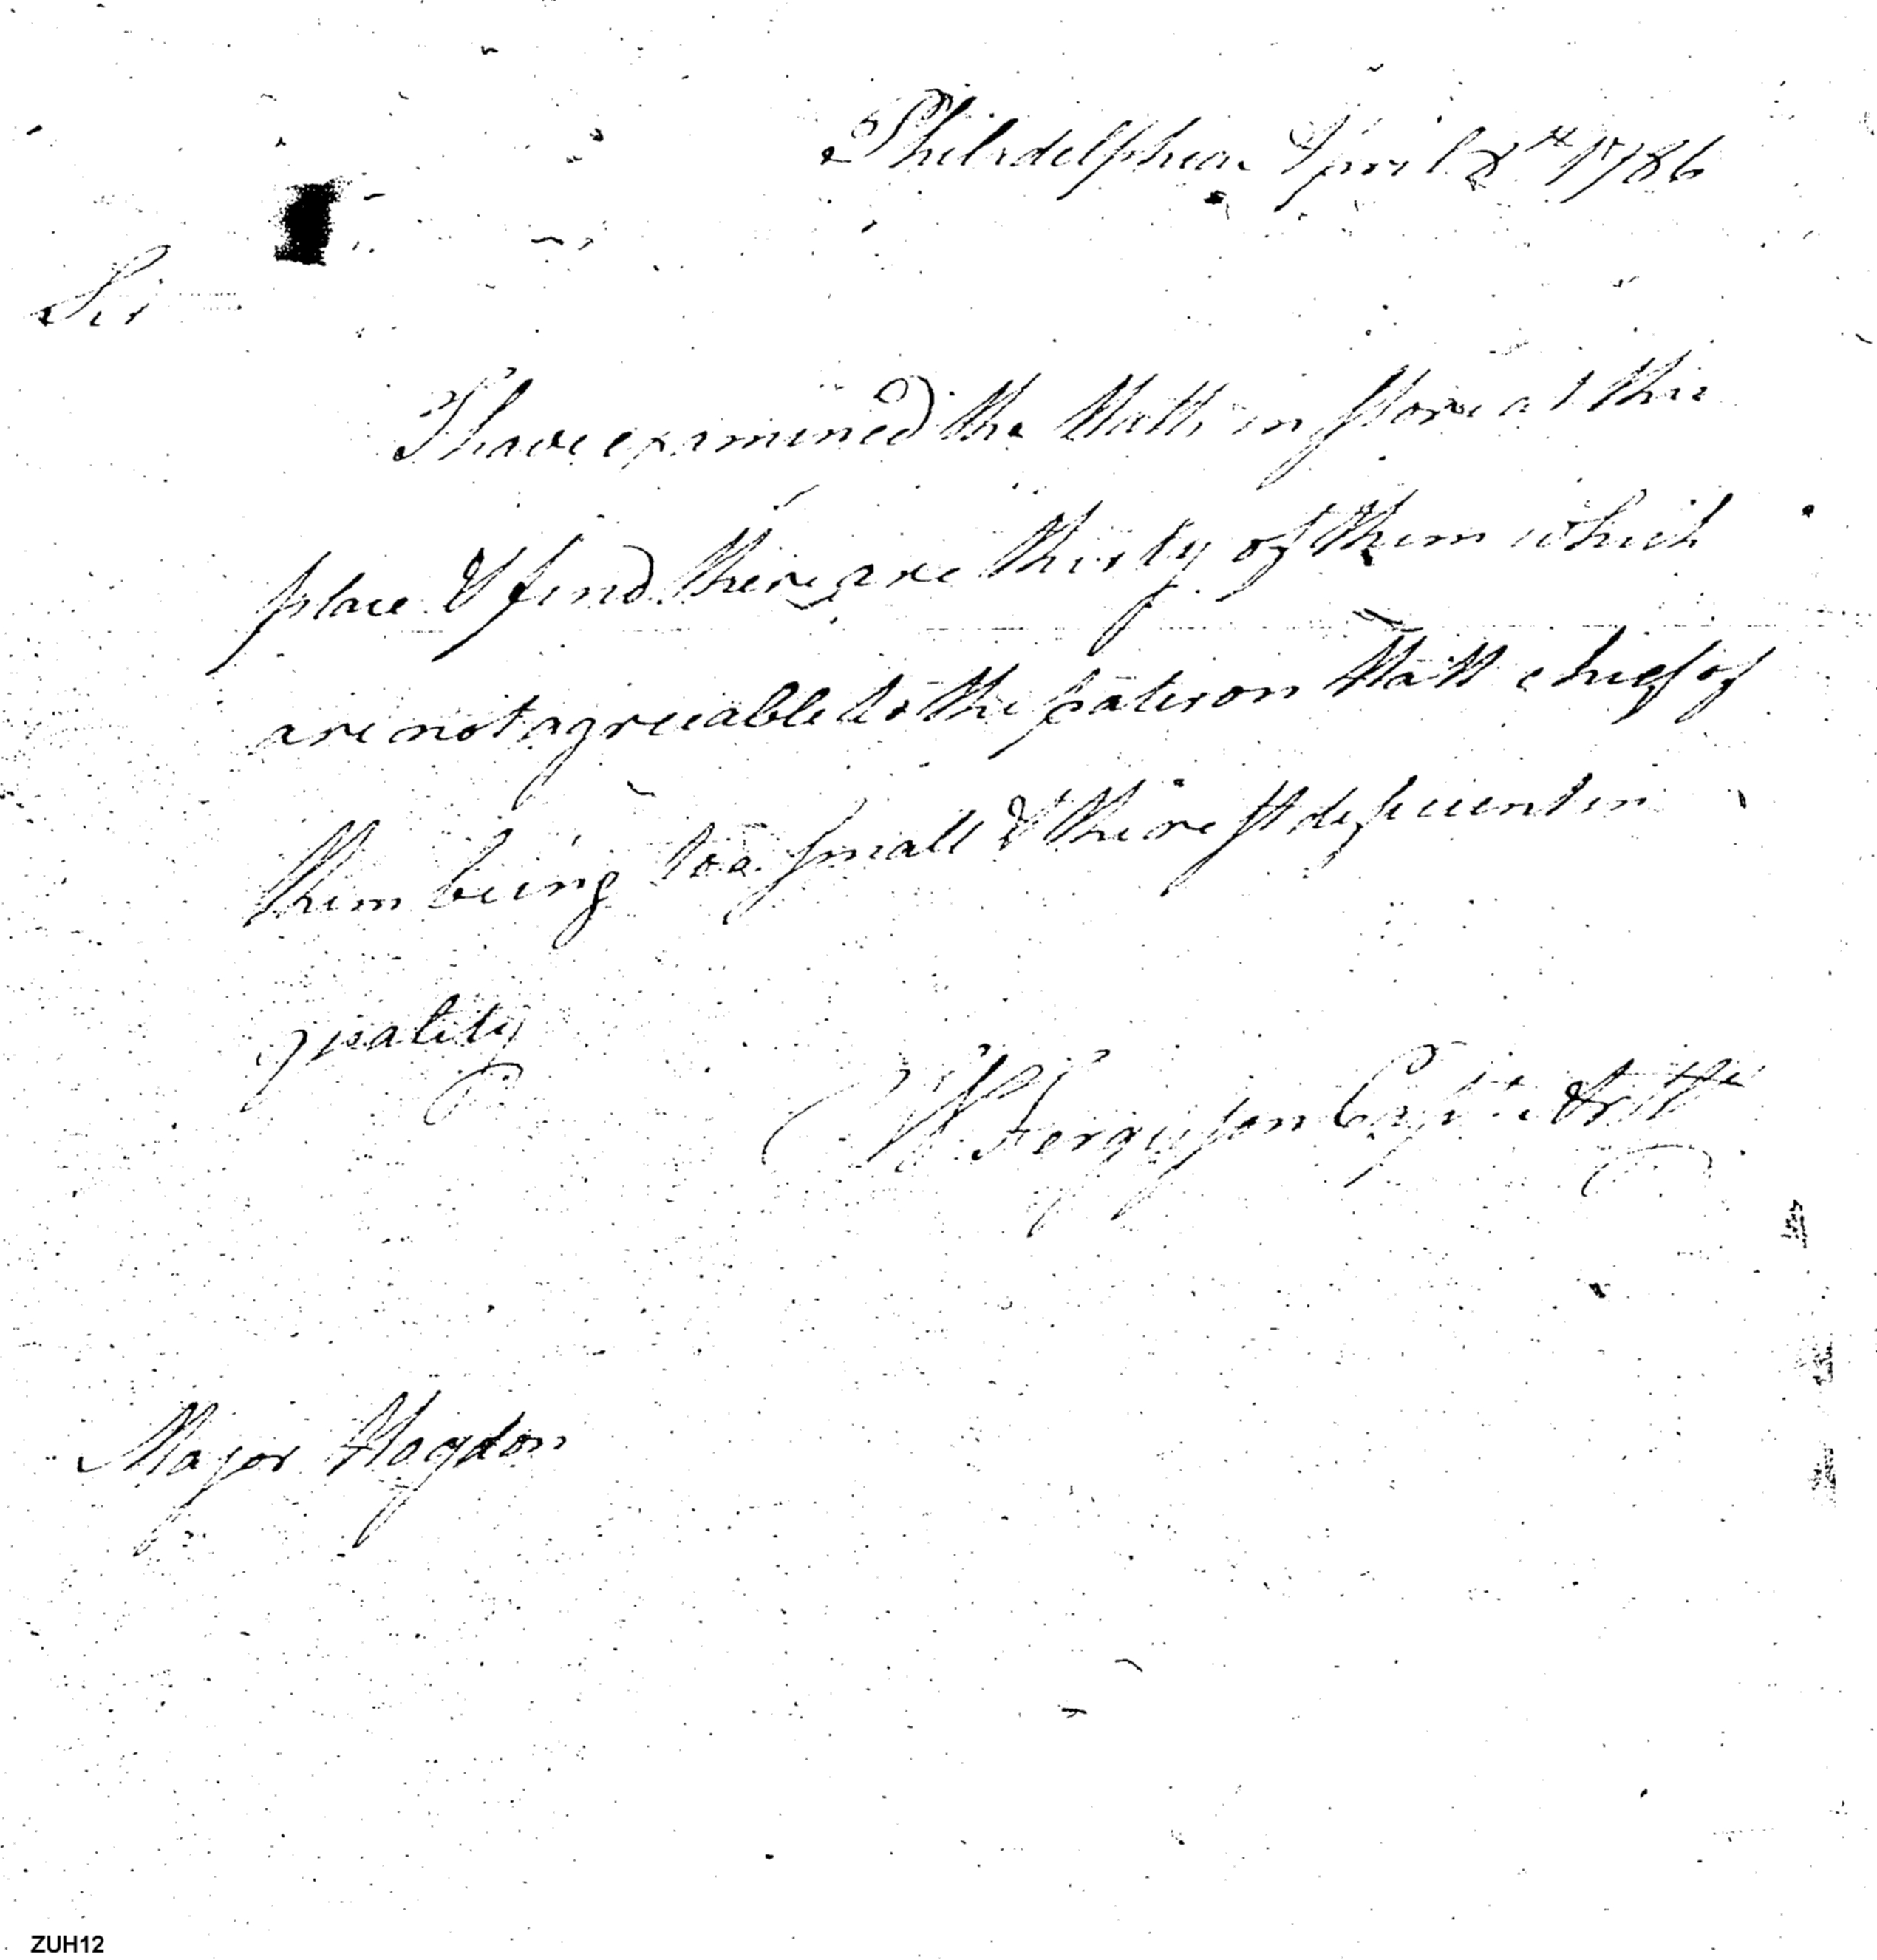 Philadelphia April 8th 1786
Sir
I have examined the Hatts in Store at this
place & find there are thirty of them which
are not agreeable to the pateron Hatt chief of
them being too small & the rest deficient in
quality
Wm Ferguson Capt. Artt
Major Hogdon
ZUH12